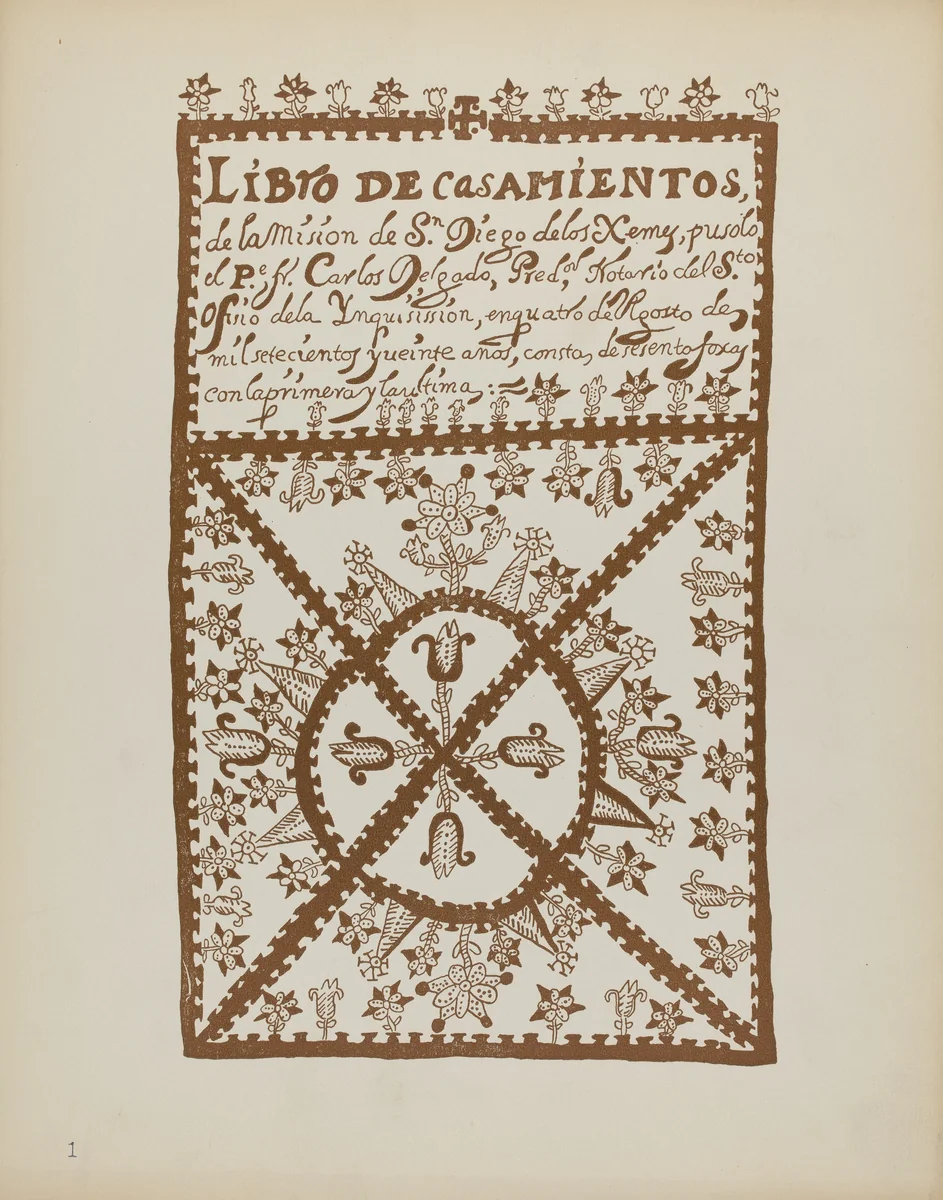 LiBro DE CasAMIENTOS,
de la Mision de S.n Diego delos Xemes, pusolo
el P.e fr. Carlos Delgado, Pred.or Notario del S.to
Ofisio dela Ynquisission, enquatro de Agosto de
mil setecientos y ueinte años, consta de sesenta foxas
con la primera y la ultima,
1